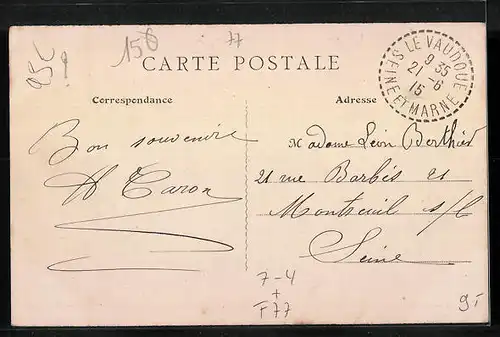 25C
156
77
CARTE POSTALE
LE VAUDOUE
9 35
21 -6
15
SEINE ET MARNE
Correspondance
Adresse
Bon souvenir
Madame Léon Berthier
21 rue Barbès 21
Montreuil s/B
Seine
7-4
+
F77
9-